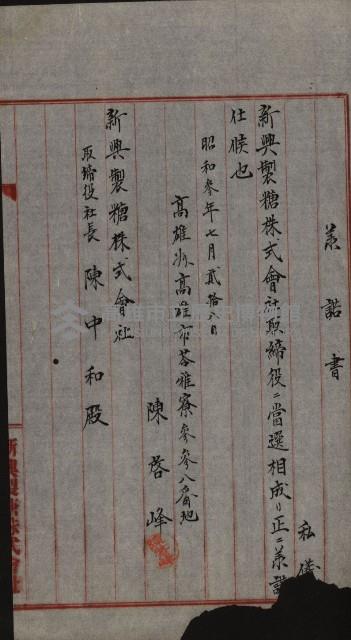 承諾書
私儀
新興製糖株式會社取締役ニ當選相成リ正ニ承諾
仕候也
昭和參年七月貳拾八日
高雄州高雄市苓雅寮參參八番地
陳啓峰
新興製糖株式會社
取締役社長 陳中和殿
新興製糖株式會社